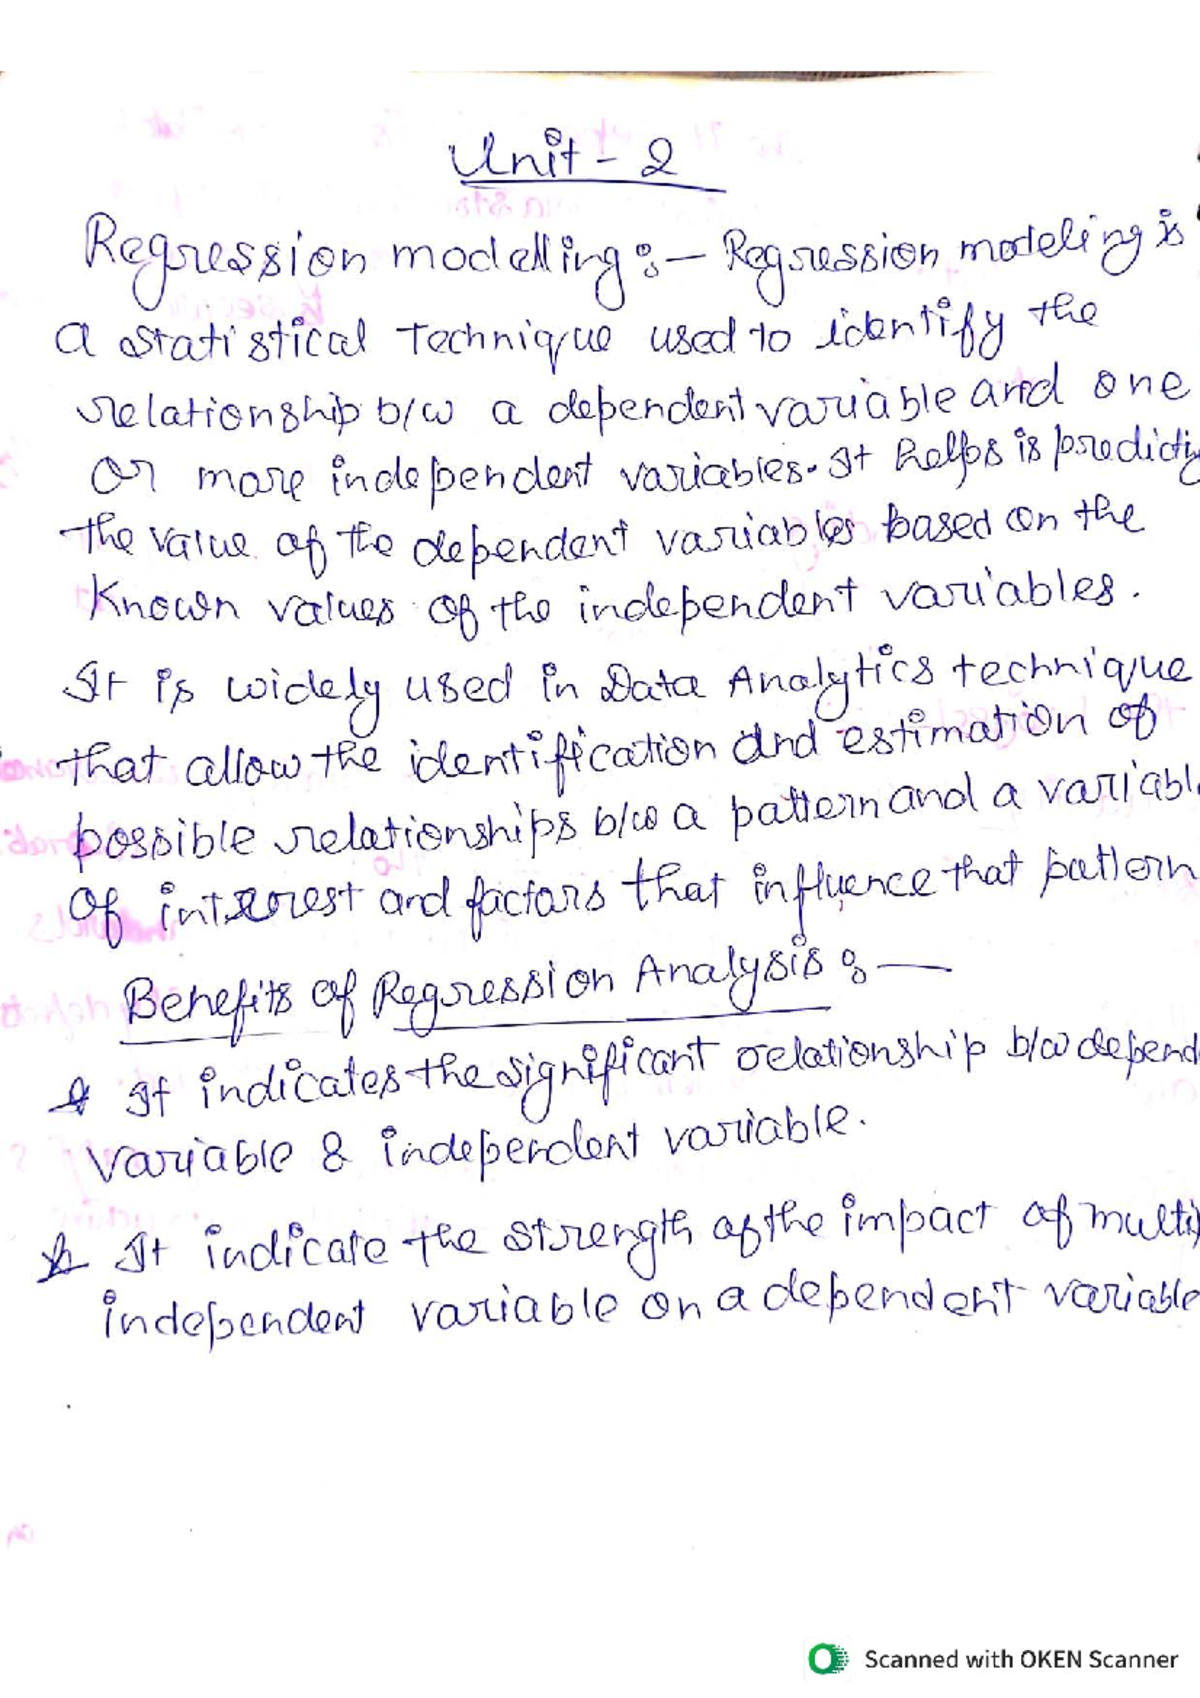 Unit - 2
Regression modelling :- Regression modeling is
a statistical technique used to identify the
relationship b/w a dependent variable and one
or more independent variables. It helps is predicti
the value of the dependent variables based on the
known values of the independent variables.
It is widely used in Data Analytics technique
that allow the identification and estimation of
possible relationships b/w a pattern and a variabl
of interest and factors that influence that pattern
Benefits of Regression Analysis :-
It indicates the significant relationship b/w depend
variable & independent variable.
It indicate the strength of the impact of multi
independent variable on a dependent variable
Scanned with OKEN Scanner